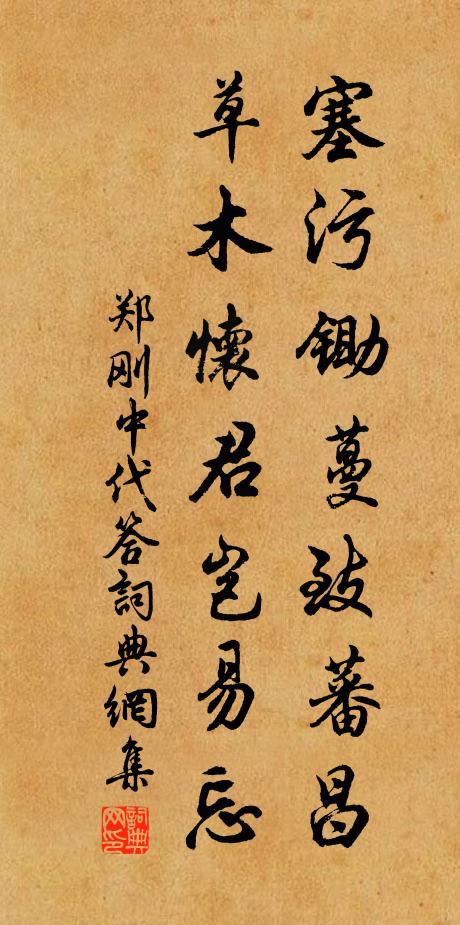 塞污锄蔓致蕃昌
草木懷君岂易忘
郑刚中代答詞典網集
詞典网印